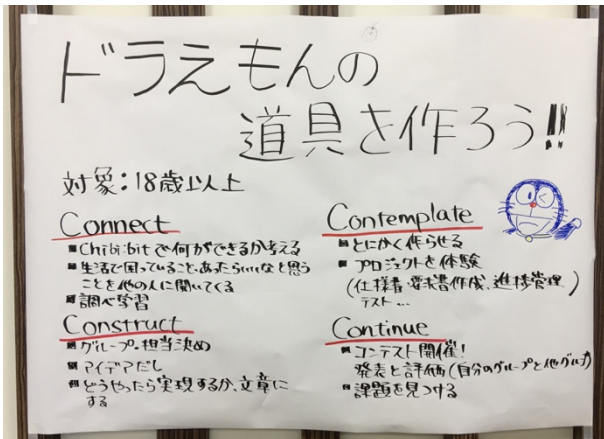 ドラえもんの
道具を作ろう!!
対象：18歳以上
Connect
Chibi:bitで何ができるか考える
生活で困っていること、あったらいいなと思う
ことを他の人に聞いてくる
調べ学習
Construct
グループ・担当決め
アイデアだし
どうやったら実現するか、文章に
する
Contemplate
とにかく作らせる
プロジェクトを体験
(仕様書・要求書作成、進捗管理
テスト…)
Continue
コンテスト開催!
発表と評価(自分のグループと他グループ)
課題を見つける